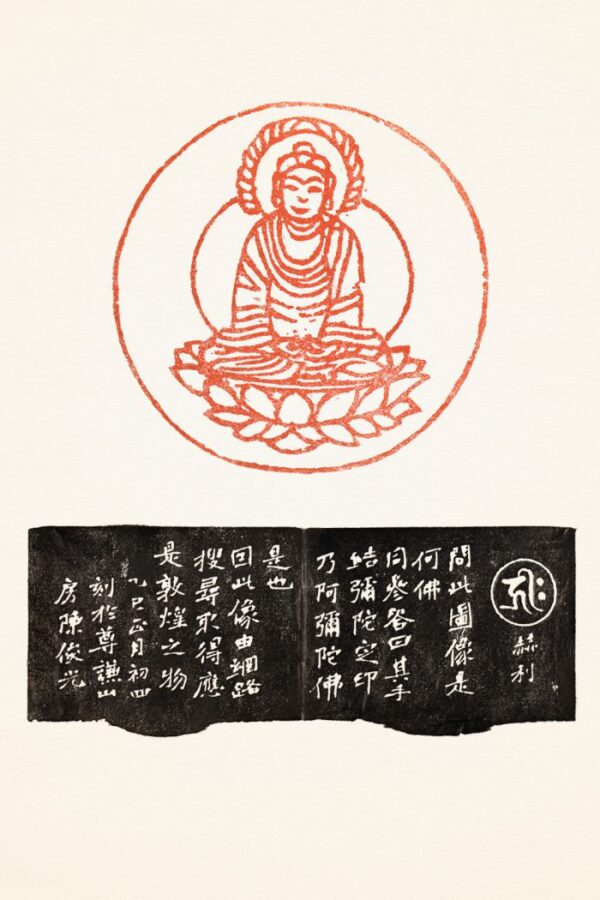 𑖮𑖿𑖨𑖱𑖾
赫利
問此圖像是
何佛
同參答曰其手
結彌陀定印
乃阿彌陀佛
是也
因此像由網路
搜尋取得應
是敦煌之物
乙巳正月初四
刻於尊謙山
房陳俊光